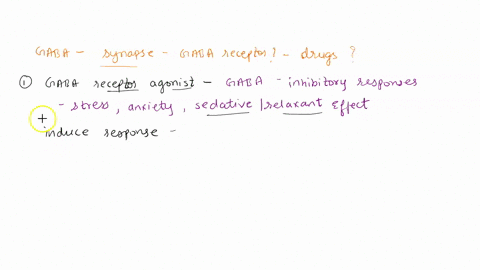 GABA - synapse - GABA receptor? - drugs ?
① GABA receptor agonist - GABA - inhibitory responses
- stress, anxiety, sedative / relaxant effect
induce response -